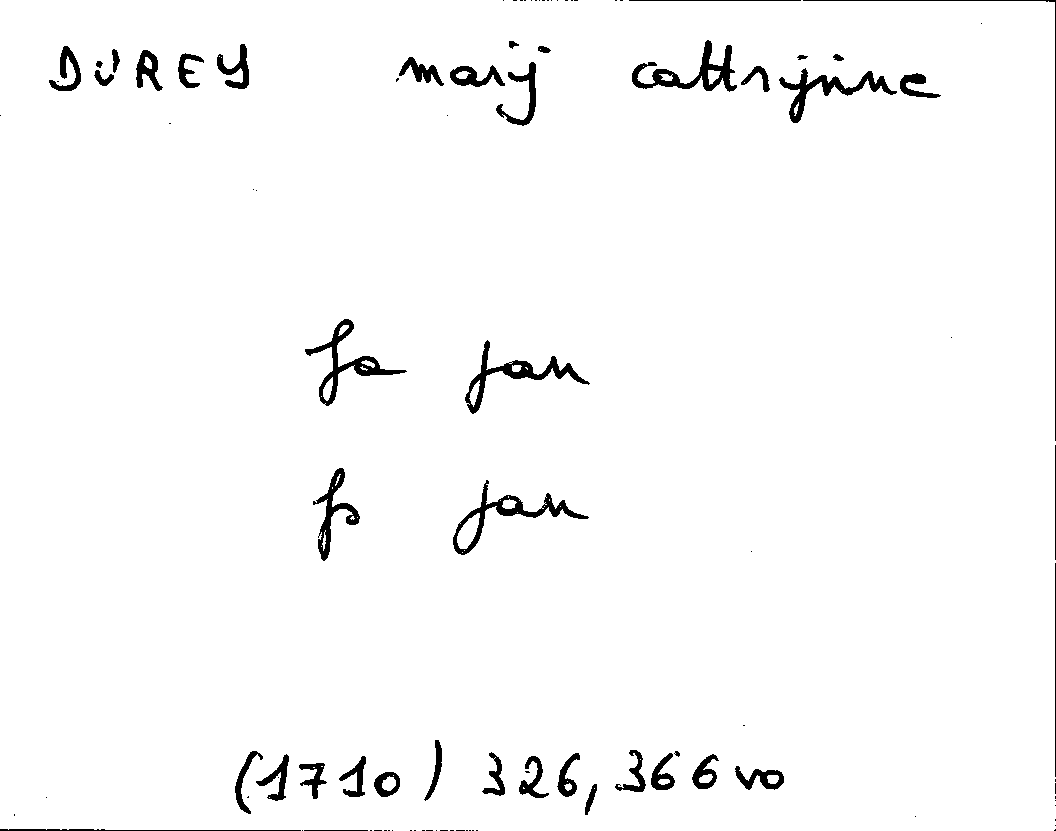 DUREY marij cattrijnne
fa jan
fs jan
(1710) 326, 366 vo